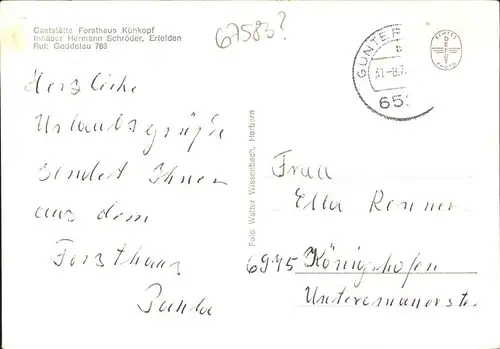 Gaststätte Forsthaus Kühkopf
Inhaber Hermann Schröder, Erfelden
Ruf: Goddelau 768
67583?
GUNTER
b
31.-8.7
653
ECHTES
PHOTO
Herzliche
Urlaubsgrüße
sendet Ihnen
aus dem
Forsthaus
Foto Walter Wissenbach, Herborn
Frau
Ella Renner
6975 Königshofen